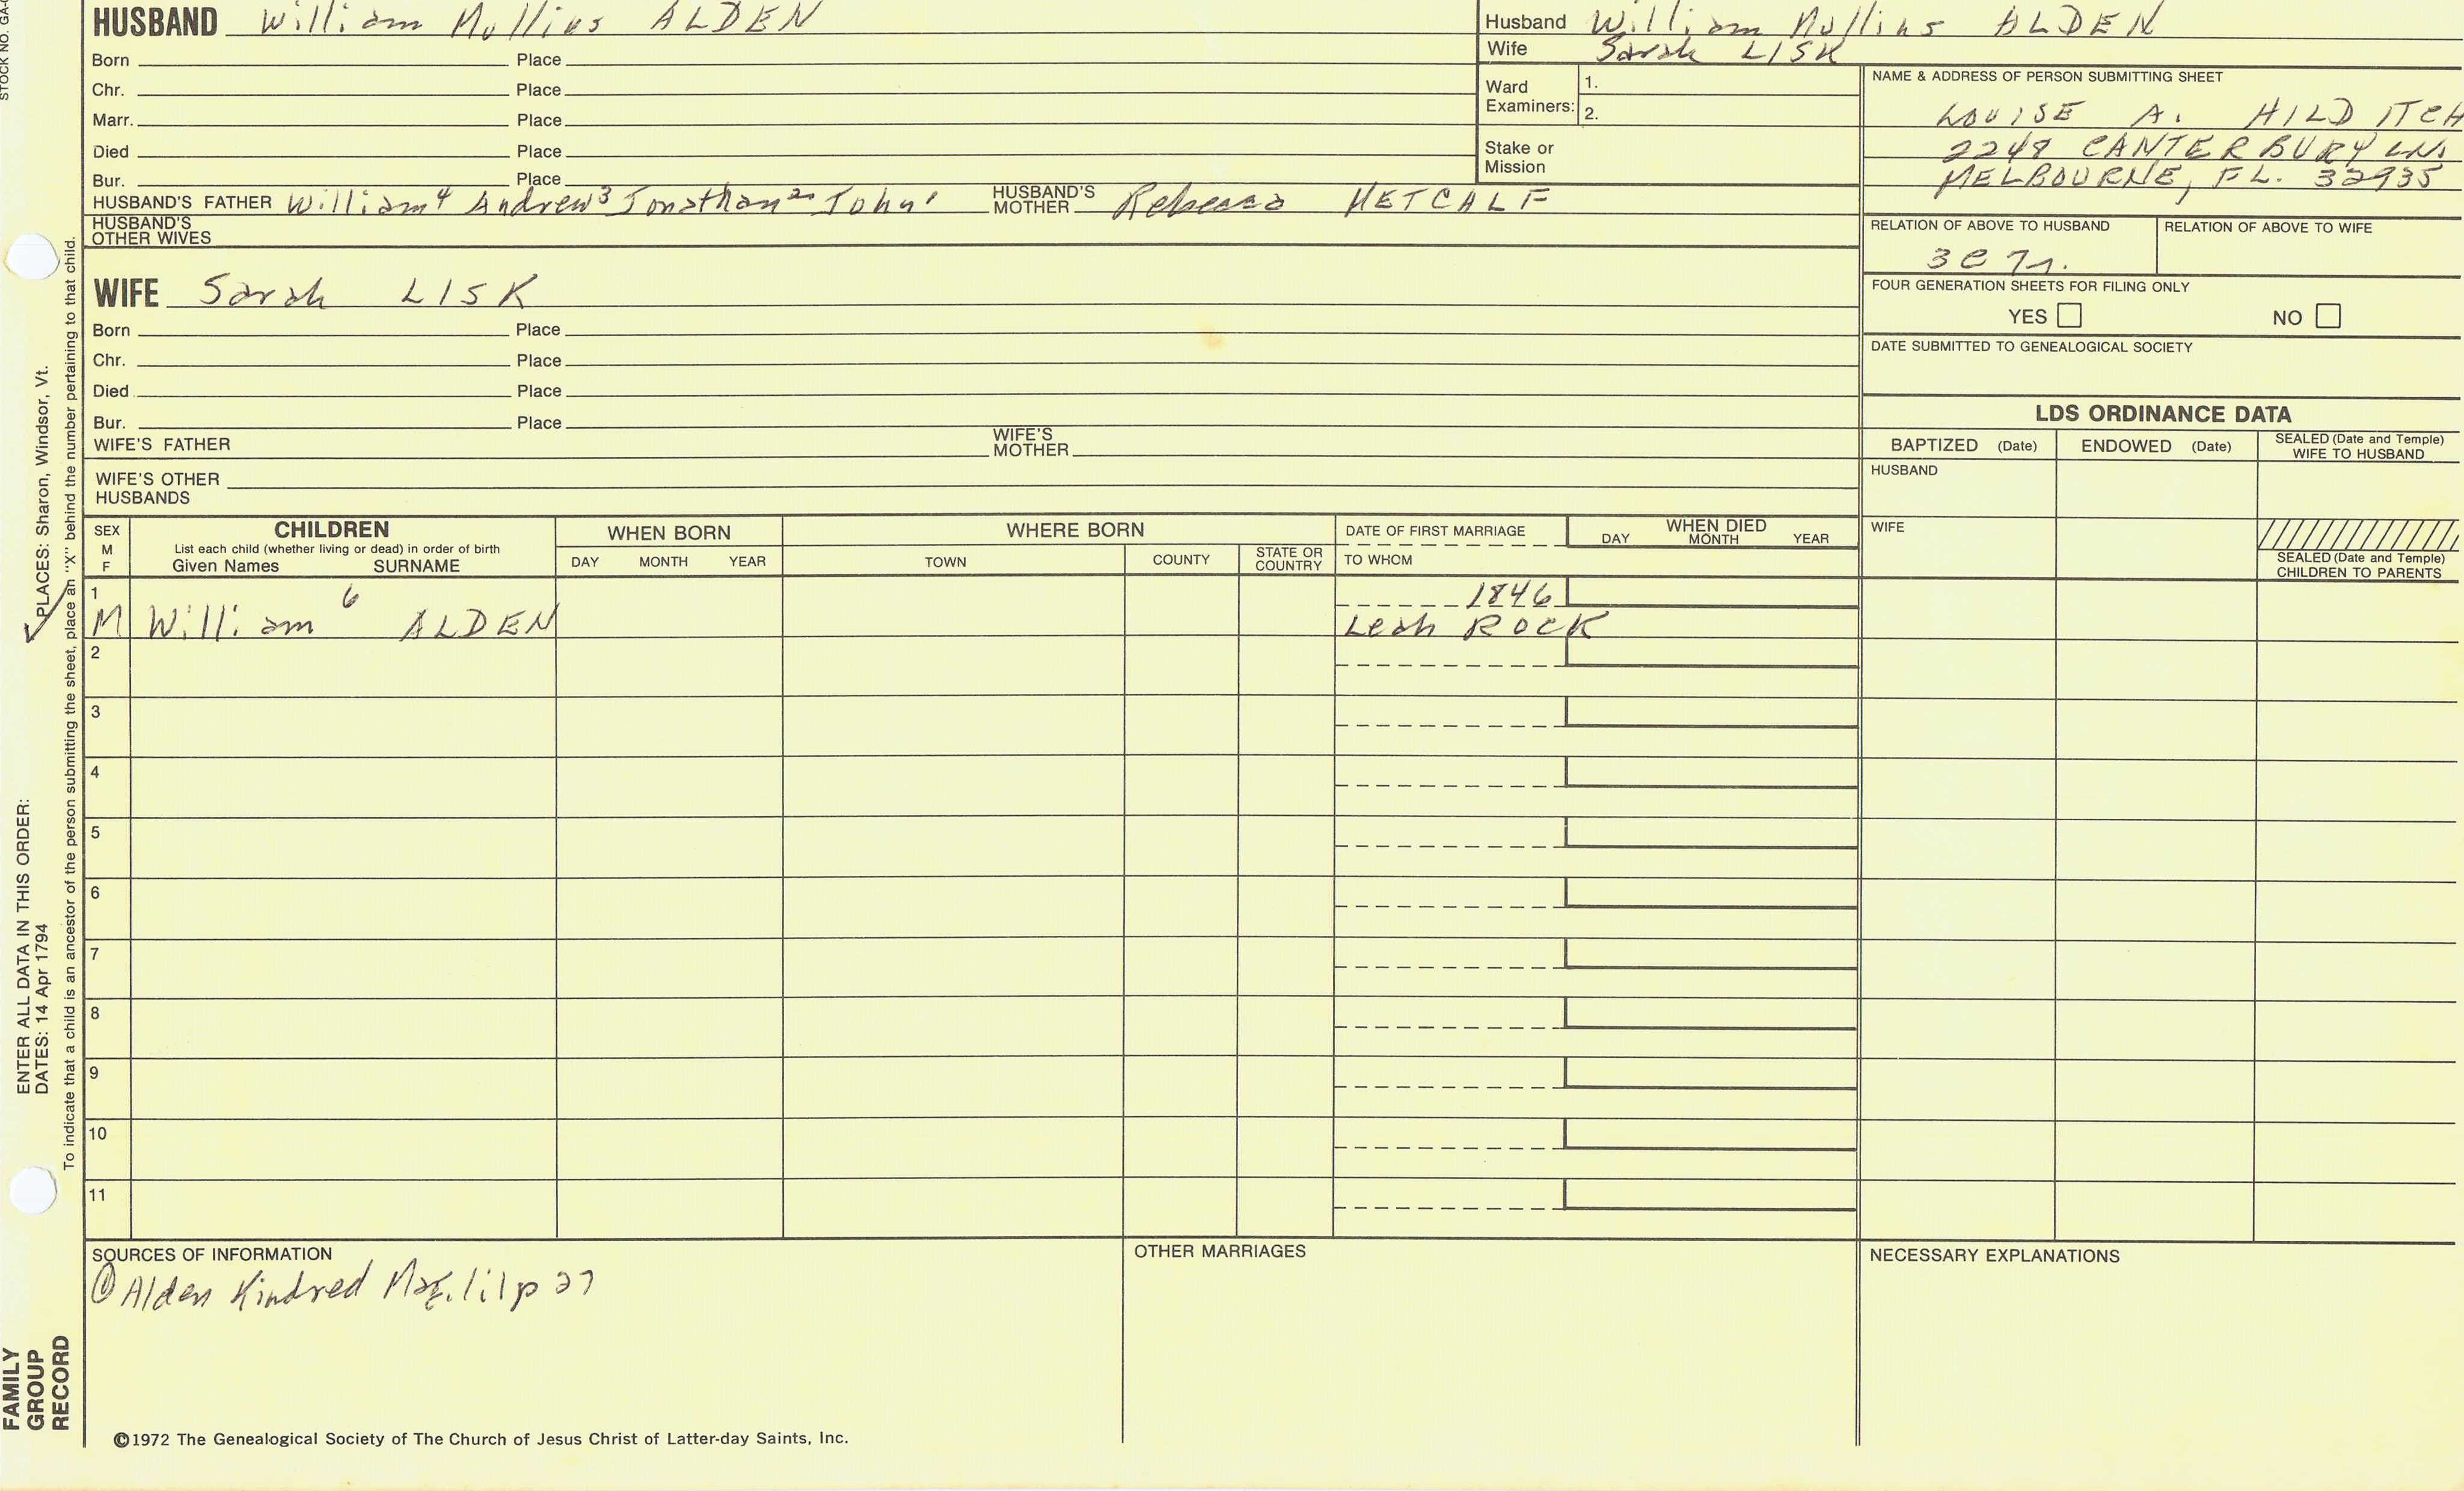 STOCK NO. GA-
HUSBAND William Mullins ALDEN
Born Place
Chr. Place
Marr. Place
Died Place
Bur. Place
HUSBAND'S FATHER William⁴ Andrew³ Jonathan² John¹ HUSBAND'S MOTHER Rebecca METCALF
HUSBAND'S OTHER WIVES
Husband William Mullins ALDEN
Wife Sarah LISK
Ward Examiners: 1.
2.
Stake or Mission
NAME & ADDRESS OF PERSON SUBMITTING SHEET
LOUISE A. HILDITCH
2248 CANTERBURY LN.
MELBOURNE, FL. 32935
RELATION OF ABOVE TO HUSBAND RELATION OF ABOVE TO WIFE
3C
FOUR GENERATION SHEETS FOR FILING ONLY
YES NO
DATE SUBMITTED TO GENEALOGICAL SOCIETY
WIFE Sarah LISK
Born Place
Chr. Place
Died Place
Bur. Place
WIFE'S FATHER WIFE'S MOTHER
WIFE'S OTHER HUSBANDS
LDS ORDINANCE DATA
BAPTIZED (Date) ENDOWED (Date) SEALED (Date and Temple) WIFE TO HUSBAND
HUSBAND
WIFE
SEALED (Date and Temple) CHILDREN TO PARENTS
SEX M F CHILDREN WHEN BORN WHERE BORN DATE OF FIRST MARRIAGE WHEN DIED
List each child (whether living or dead) in order of birth
Given Names SURNAME DAY MONTH YEAR TOWN COUNTY STATE OR COUNTRY TO WHOM DAY MONTH YEAR
1 1846
M William⁶ ALDEN Leah ROCK
2
3
4
5
6
7
8
9
10
11
SOURCES OF INFORMATION OTHER MARRIAGES NECESSARY EXPLANATIONS
① Alden Kindred Mag. p 27
©1972 The Genealogical Society of The Church of Jesus Christ of Latter-day Saints, Inc.
FAMILY GROUP RECORD
ENTER ALL DATA IN THIS ORDER:
DATES: 14 Apr 1794
✓ PLACES: Sharon, Windsor, Vt.
To indicate that a child is an ancestor of the person submitting the sheet, place an "X" behind the number pertaining to that child.